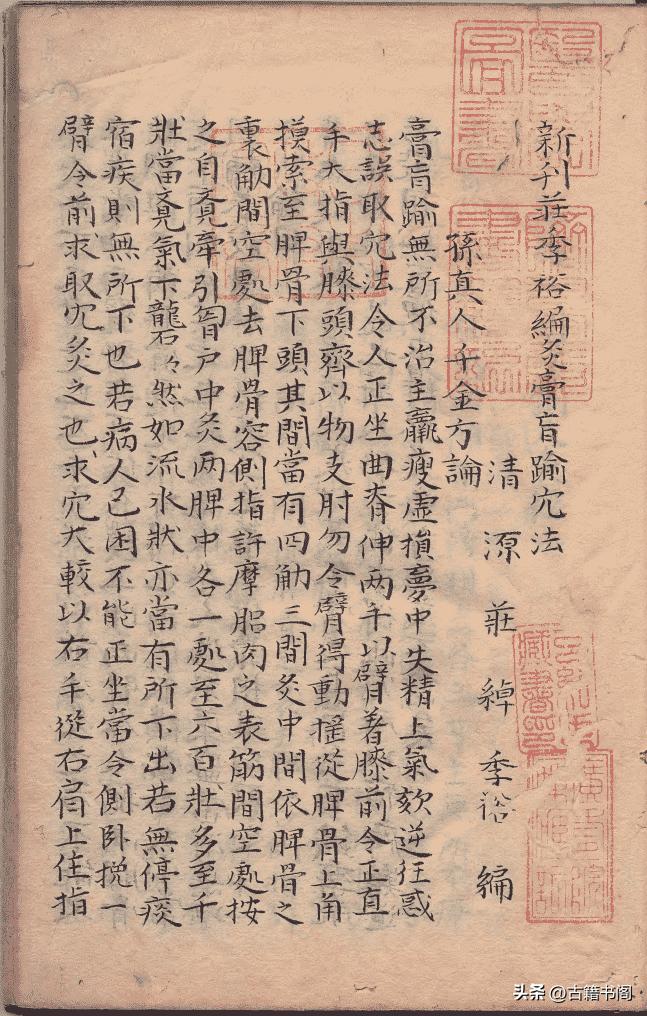 新刋莊季裕編灸膏肓腧穴法
清源莊綽季裕編
孫真人千金方論
膏肓腧無所不治主羸瘦虛損夢中失精上氣欬逆狂惑
忘誤取穴法令人正坐曲脊伸兩手以臂著膝前令正直
手大指與膝頭齊以物支肘勿令臂得動搖從胛骨上角
摸索至胛骨下頭其間當有四肋三間灸中間依胛骨之
裏肋間空處去胛骨容側指許摩䏚肉之表筋間空處按
之自覺牽引胷戶中灸兩胛中各一處至六百壯多至千
壯當覺氣下礱礱然如流水狀亦當有所下出若無停痰
宿疾則無所下也若病人已困不能正坐當令側卧挽一
臂令前求取穴灸之也求穴大較以右手從右肩上住指
头条 @古籍书阁